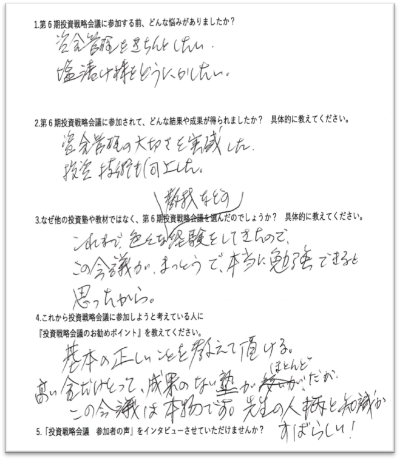 1.第6期投資戦略会議に参加する前、どんな悩みがありましたか?
資金管理をきちんとしたい.
塩漬け株をどうにかしたい。
2.第6期投資戦略会議に参加されて、どんな結果や成果が得られましたか? 具体的に教えてください。
資金管理の大切さを実感した.
投資技術も向上した。
教材などの
3.なぜ他の投資塾や教材ではなく、第6期投資戦略会議を選んだのでしょうか? 具体的に教えてください。
これまで、色んな経験をしてきたので、
この会議が、まっとうで、本当に勉強できると
思ったから。
4.これから投資戦略会議に参加しようと考えている人に
『投資戦略会議のお勧めポイント』を教えてください。
基本の正しいことを教えて頂ける。
高い金だけとって、成果のない塾がほとんどだが、
この会議は本物です。先生の人柄と知識が
すばらしい!
5.「投資戦略会議 参加者の声」をインタビューさせていただけませんか?